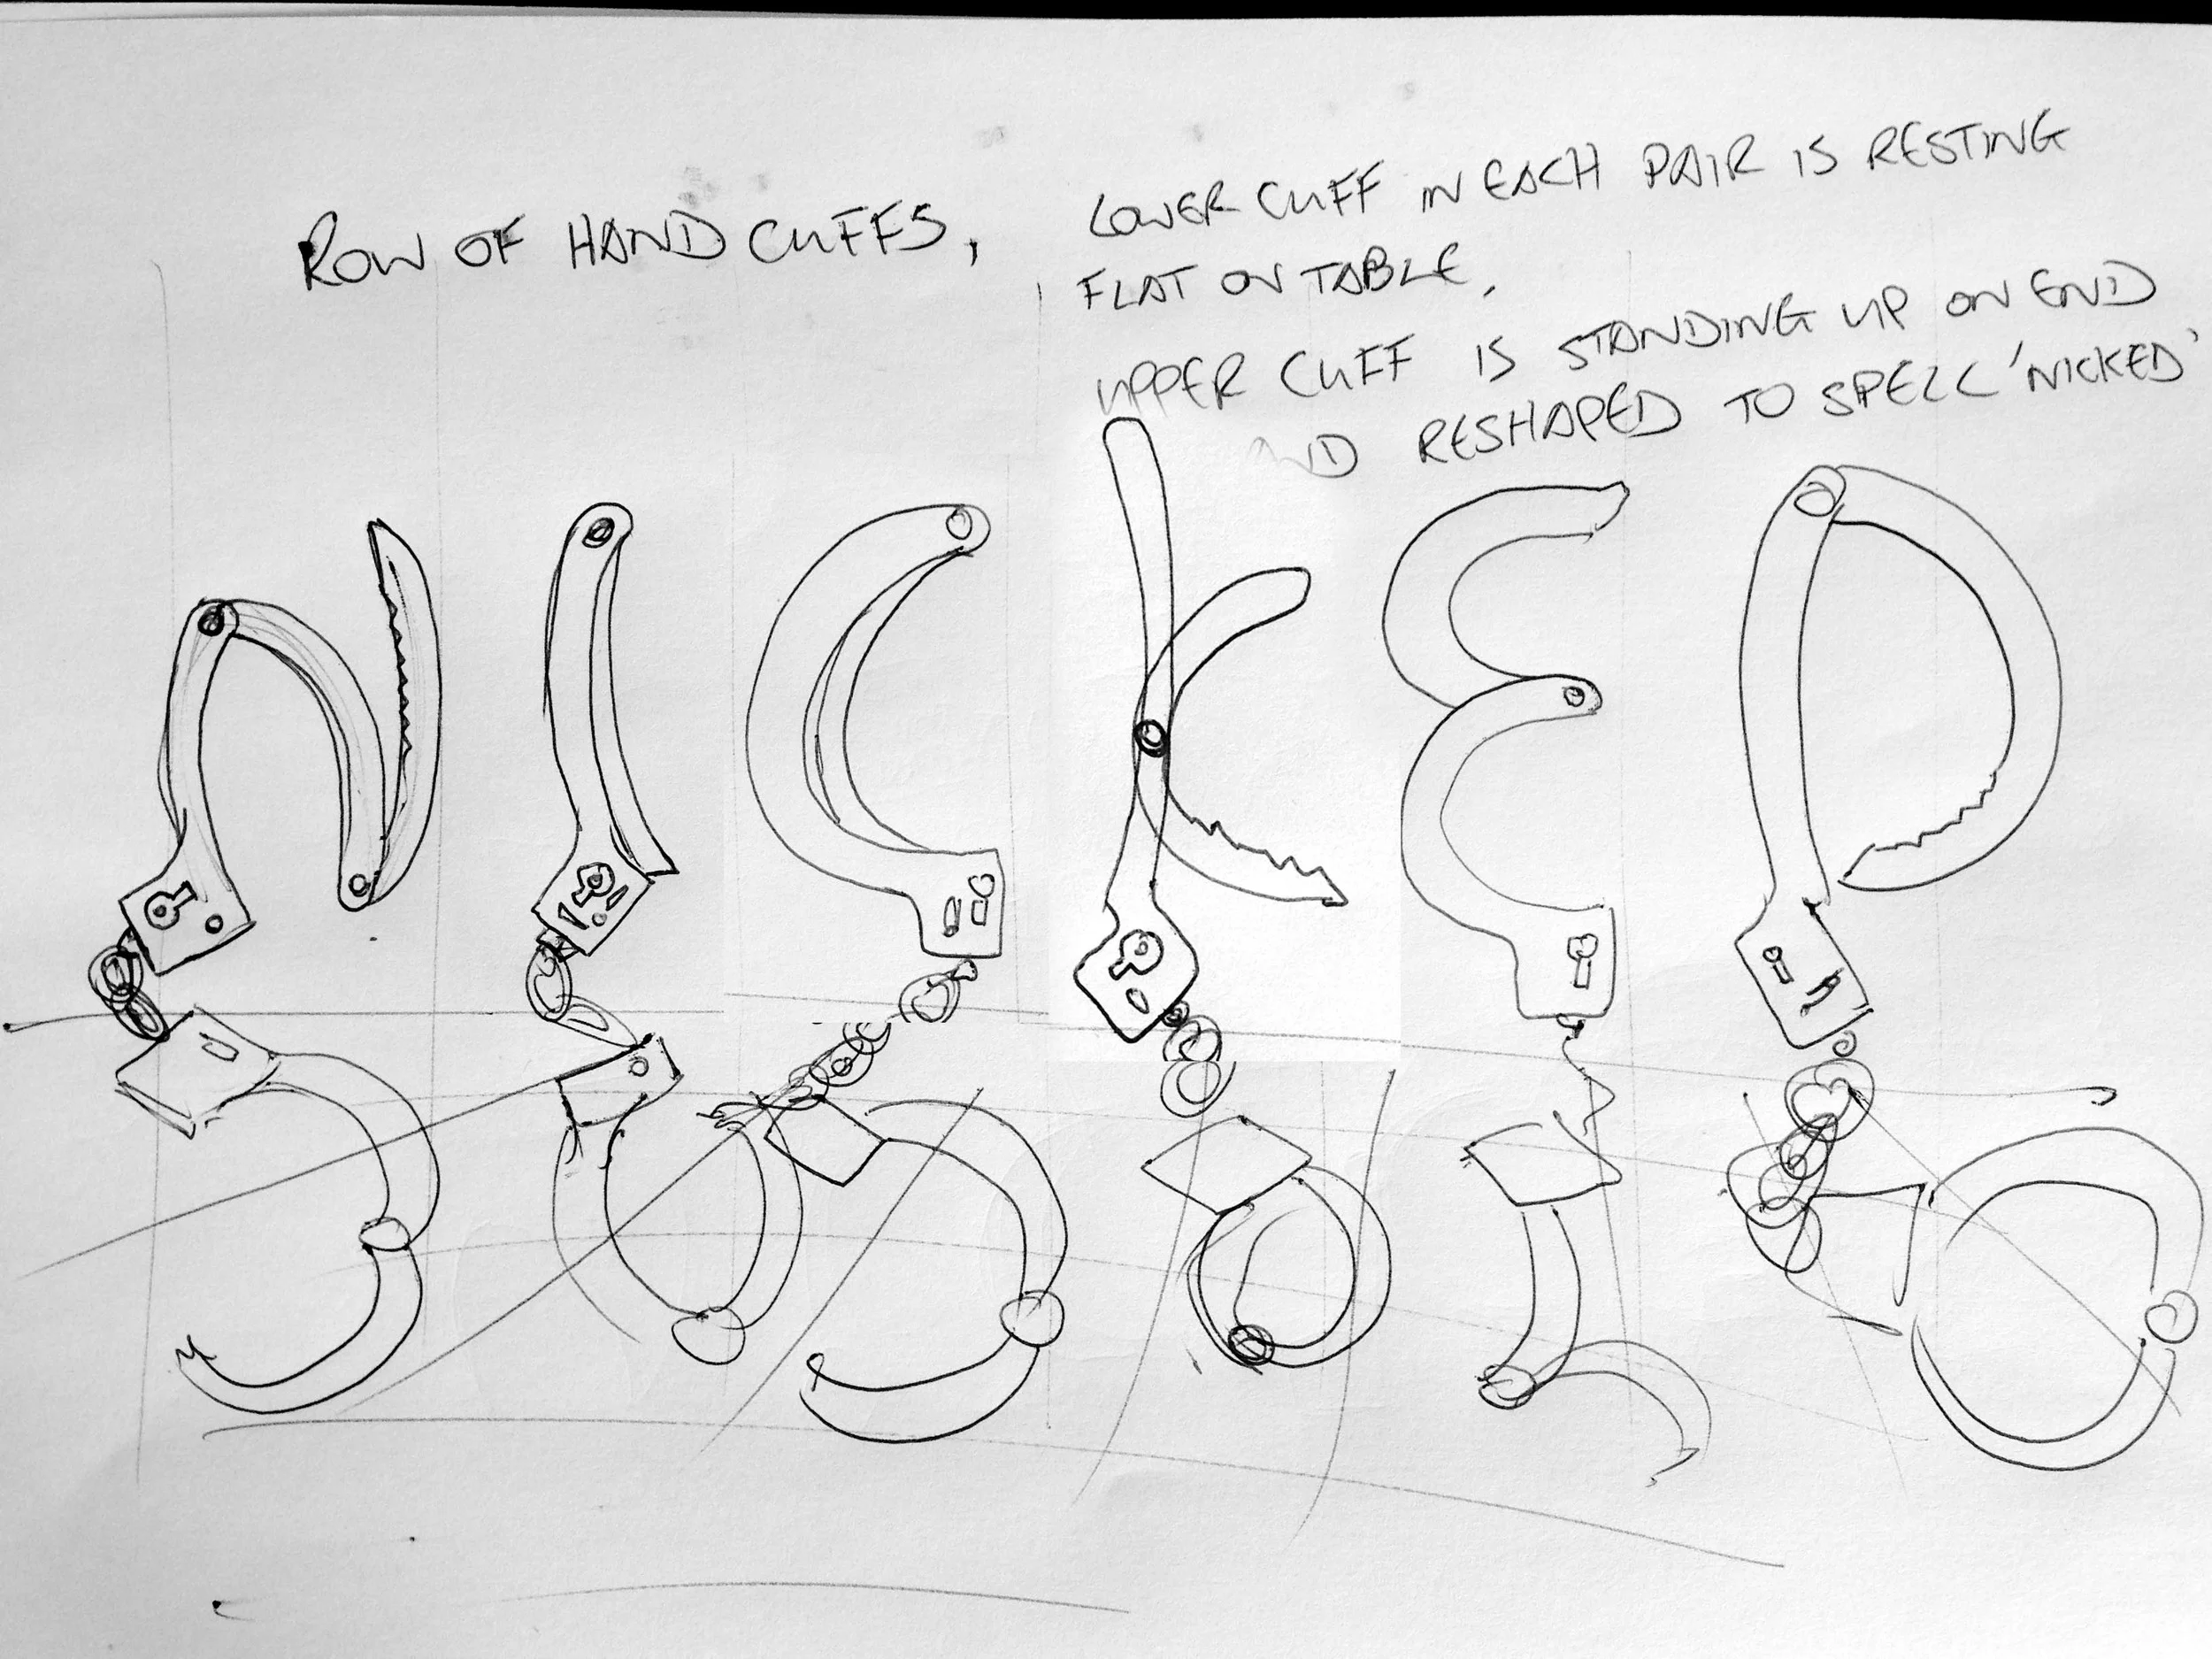 ROW OF HANDCUFFS,
LOWER CUFF IN EACH PAIR IS RESTING
FLAT ON TABLE.
UPPER CUFF IS STANDING UP ON END
AND RESHAPED TO SPELL 'NICKED'
NICKED